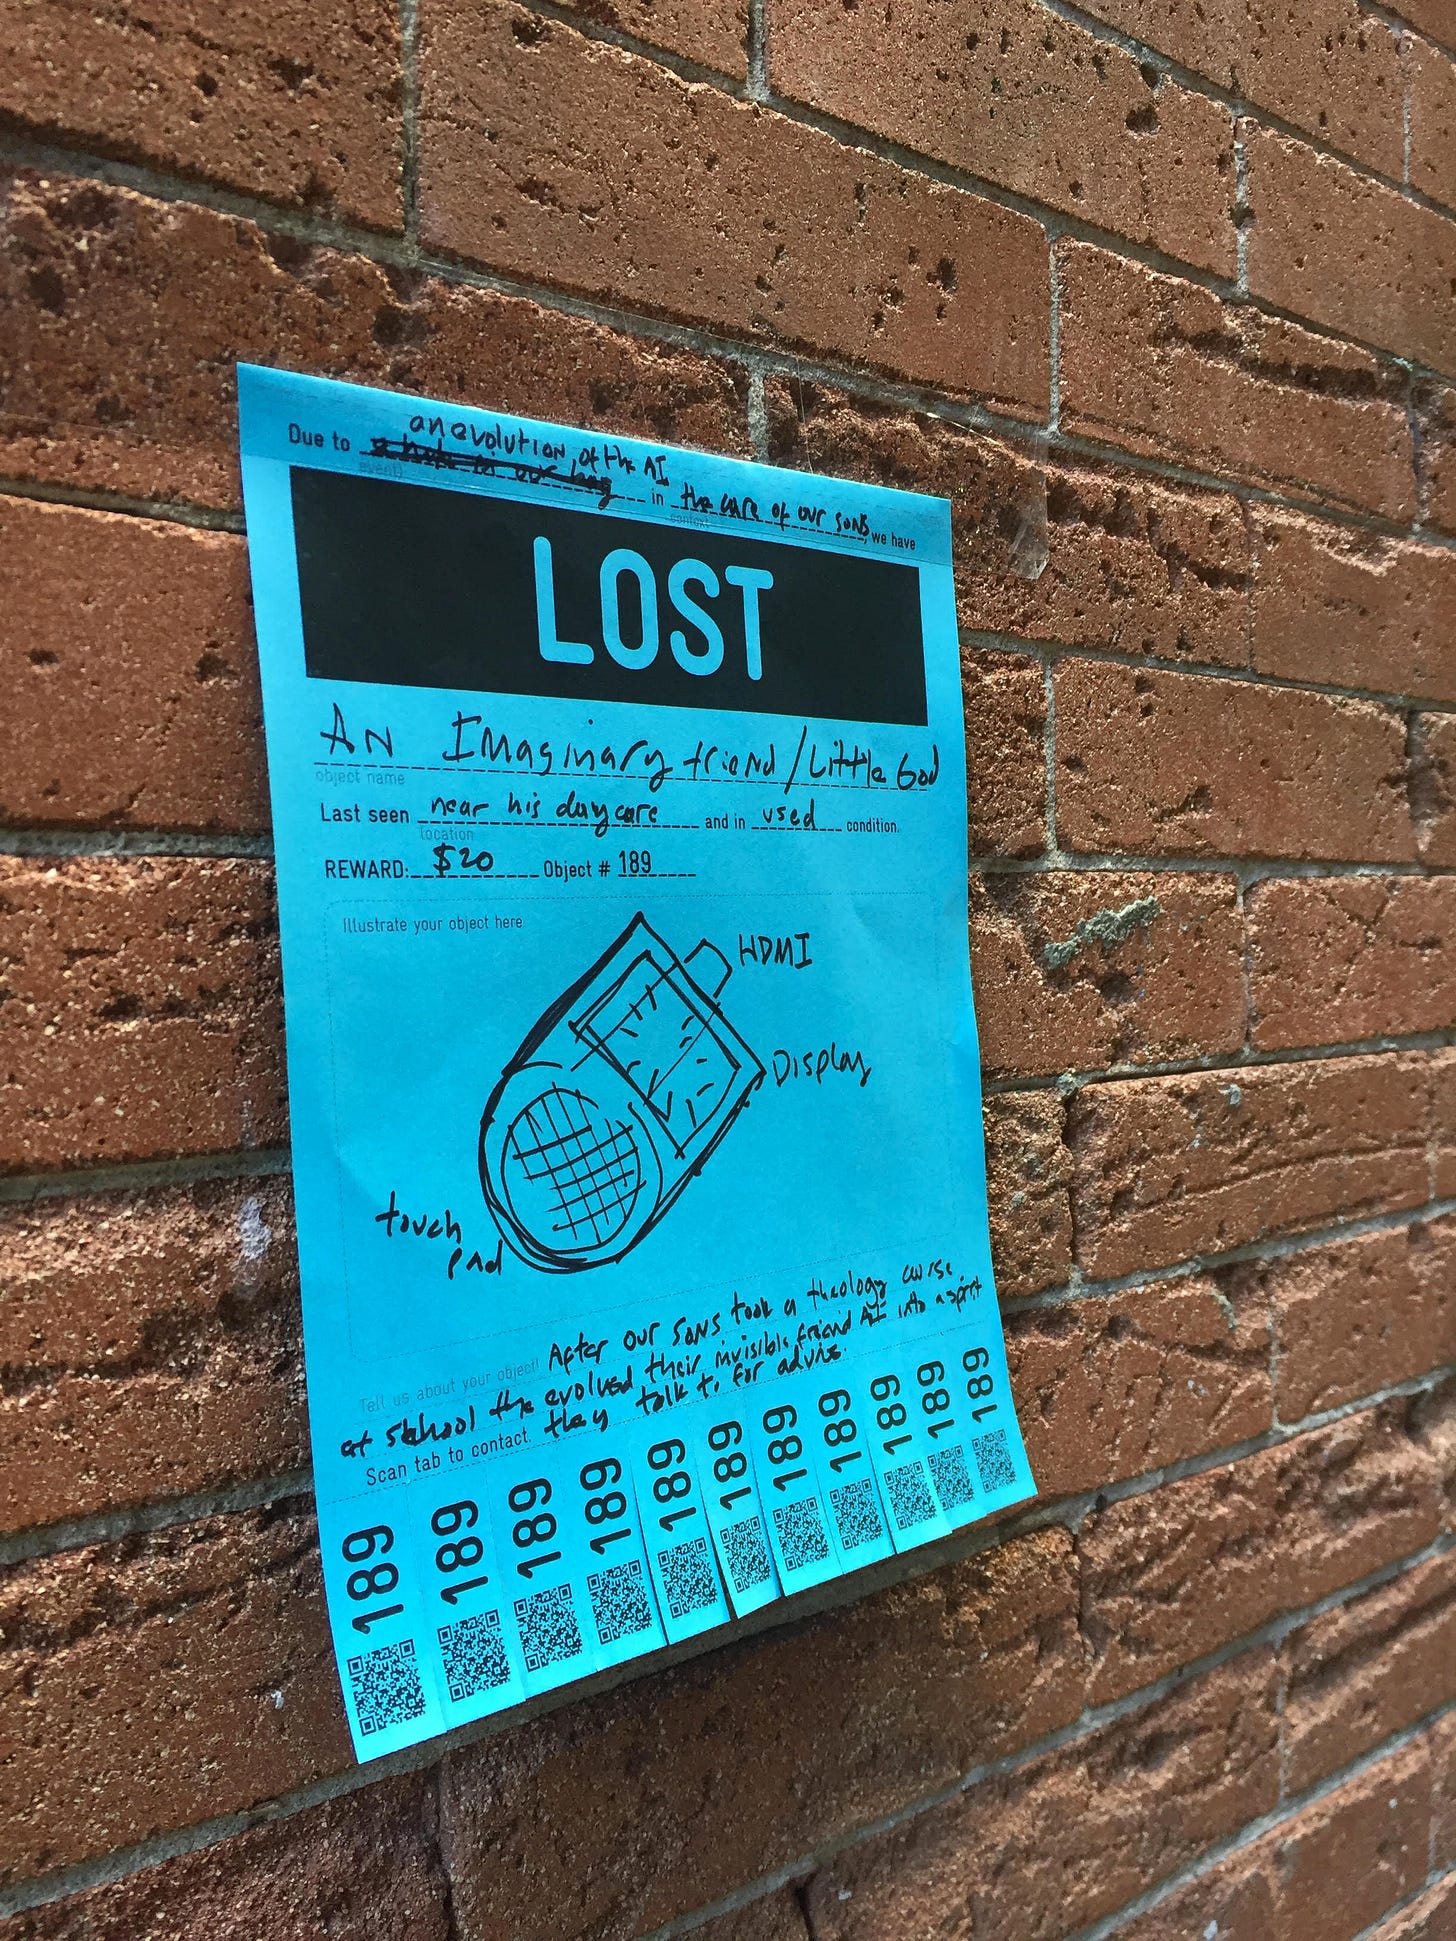 an evolution of the AI
Due to in the care of our sons, we have
event) context
LOST
AN Imaginary friend / Little God
object name
Last seen near his daycare and in used condition.
location
REWARD: $20 Object # 189
Illustrate your object here
HDMI
Display
touch
pad
Tell us about your object! After our sons took a theology
at school the evolved their invisible friend AI into a spirit
Scan tab to contact. they talk to for advise.
189 189 189 189 189 189 189 189 189 189 189